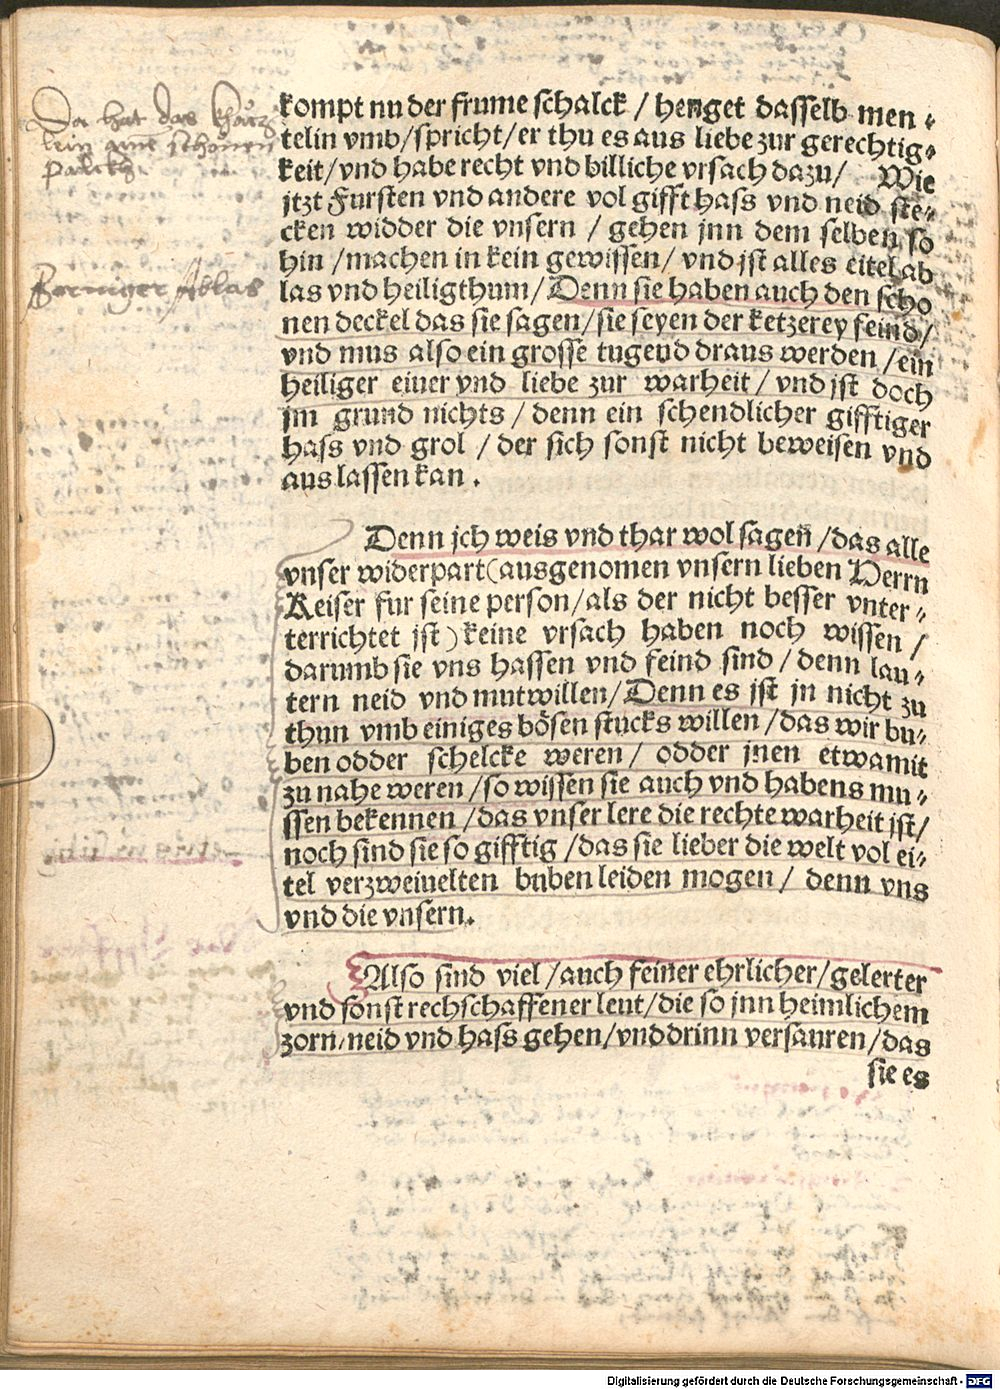 Da hat das khätz
lein aine schönen
palckh
Berniger Ablas
kompt nu der frume schalck / henget dasselb men⸗
telin vmb/spricht/er thu es aus liebe zur gerechtig⸗
keit/vnd habe recht vnd billiche vrsach dazu/ Wie
jtzt Fursten vnd andere vol gifft hass vnd neid ste⸗
cken widder die vnsern / gehen jnn dem selben so
hin /machen in kein gewissen/ vnd jst alles eitel ab
las vnd heiligthum/Denn sie haben auch den scho
nen deckel das sie sagen/sie seyen der ketzerey feind/
vnd mus also ein grosse tugend draus werden /ein
heiliger eiuer vnd liebe zur warheit/ vnd jst doch
jm grund nichts / denn ein schendlicher gifftiger
hass vnd grol / der sich sonst nicht beweisen vnd
aus lassen kan .
Denn jch weis vnd thar wol sagen /das alle
vnser widerpart(ausgenomen vnsern lieben Herrn
Keiser fur seine person/als der nicht besser vnter⸗
terrichtet jst) keine vrsach haben noch wissen /
darumb sie vns hassen vnd feind sind/ denn lau⸗
tern neid vnd mutwillen/Denn es jst jn nicht zu
thun vmb einiges bösen stucks willen/das wir bu⸗
ben odder schelcke weren/ odder jnen etwamit
zu nahe weren /so wissen sie auch vnd habens mu⸗
ssen bekennen /das vnser lere die rechte warheit jst/
noch sind sie so gifftig /das sie lieber die welt vol ei⸗
tel verzweiuelten buben leiden mogen/ denn vns
vnd die vnsern.
Also sind viel/auch feiner ehrlicher/gelerter
vnd sonst rechschaffener leut/die so jnn heimlichem
zorn/neid vnd hass gehen/vnd drinn versauren/das
sie es
Digitalisierung gefördert durch die Deutsche Forschungsgemeinschaft - DFG